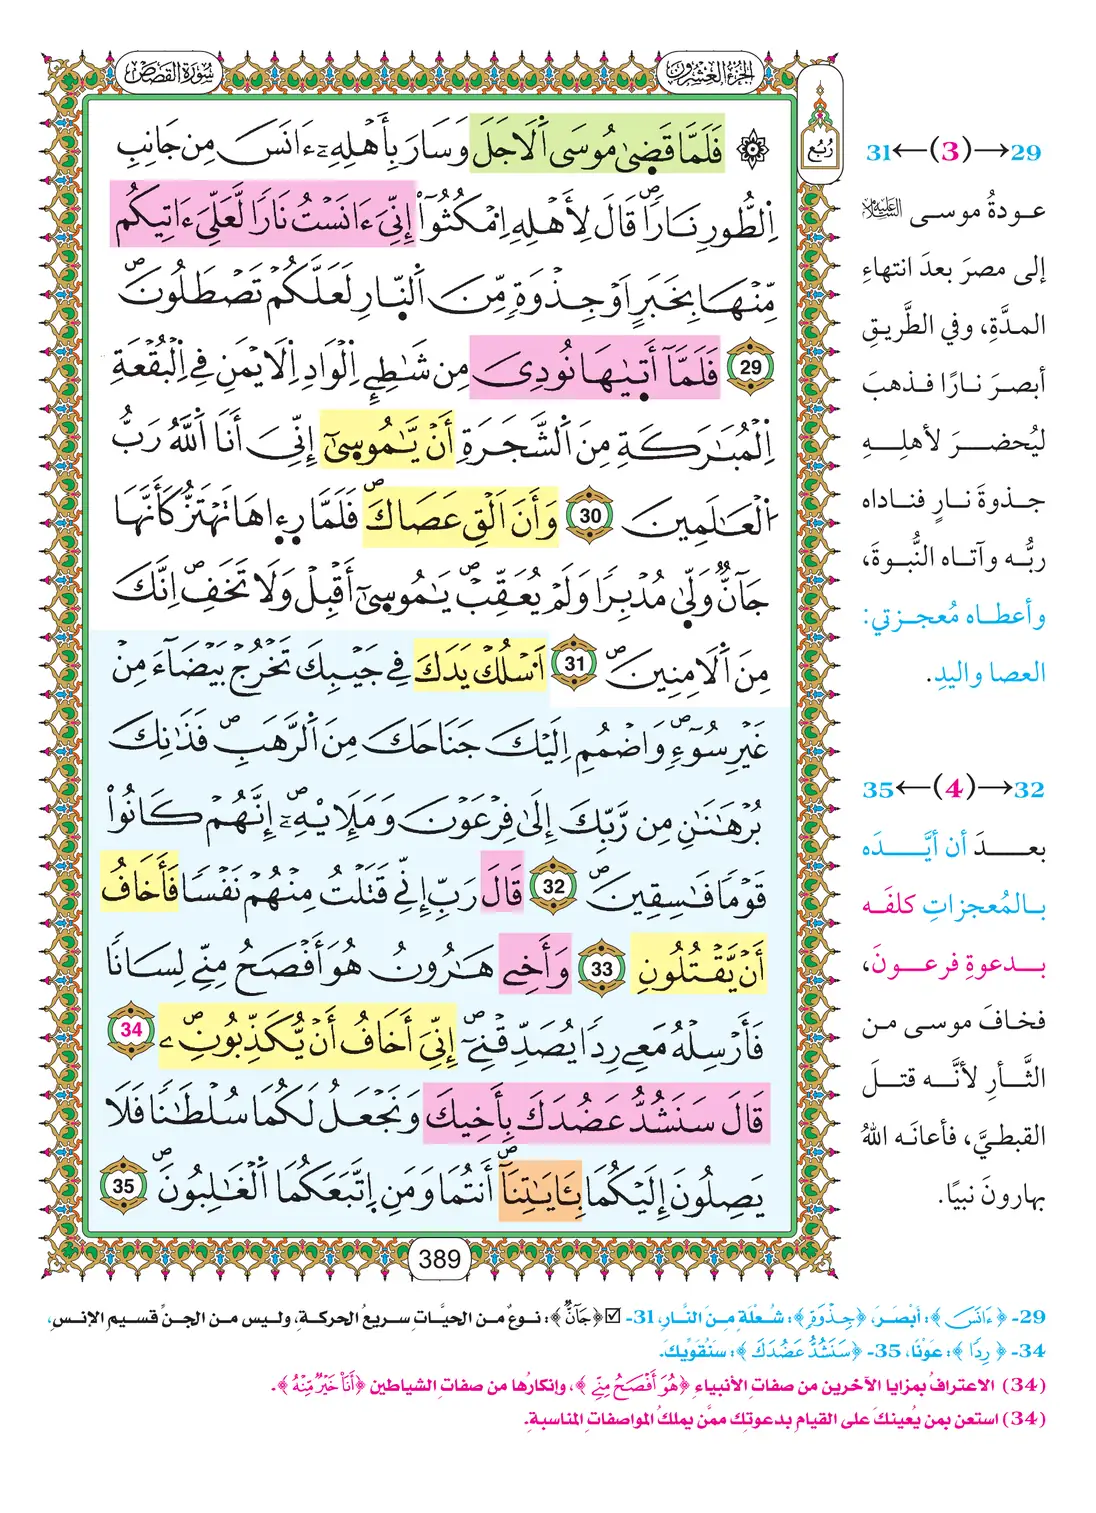 سُورَةُ القَصَصِ
الجُزْءُ العِشْرُونَ
رُبُع
۞ فَلَمَّا قَضَىٰ مُوسَى اَ۬لَاجَلَ وَسَارَ بِأَهْلِهِۦٓ ءَانَسَ مِن جَانِبِ
اِ۬لطُّورِ نَارٗاۖ قَالَ لِأَهْلِهِ اِ۟مْكُثُوٓاْ إِنِّيَ ءَانَسْتُ نَارٗا لَّعَلِّيَ ءَاتِيكُم
مِّنْهَا بِخَبَرٍ اَوْ جِذْوَةٖ مِّنَ اَ۬لنّ۪ارِ لَعَلَّكُمْ تَصْطَلُونَۖ
29 فَلَمَّآ أَتَىٰهَا نُودِيَ مِن شَٰطِےِٕ اِ۬لْوَادِ اِ۬لَايْمَنِ فِے اِ۬لْبُقْعَةِ
اِ۬لْمُبَٰرَكَةِ مِنَ اَ۬لشَّجَرَةِ أَنْ يَّٰمُوسَىٰٓ إِنِّيَ أَنَا اَ۬للَّهُ رَبُّ
اُ۬لْعَٰلَمِينَ 30 وَأَنَ اَلْقِ عَصَاكَۖ فَلَمَّا رِء۪اهَا تَهْتَزُّ كَأَنَّهَا
جَآنّٞ وَلَّىٰ مُدْبِرٗا وَلَمْ يُعَقِّبْۖ يَٰمُوسَىٰٓ أَقْبِلْ وَلَا تَخَفِ اِنَّكَ
مِنَ اَ۬لَامِنِينَۖ 31 اَ۟سْلُكْ يَدَكَ فِے جَيْبِكَ تَخْرُجْ بَيْضَآءَ مِنْ
غَيْرِ سُوٓءٖۖ وَاضْمُمِ اِلَيْكَ جَنَاحَكَ مِنَ اَ۬لرَّهَبِۖ فَذَٰنِكَ
بُرْهَٰنَٰنِ مِن رَّبِّكَ إِلَىٰ فِرْعَوْنَ وَمَلَإِيْهِۦٓۖ إِنَّهُمْ كَانُواْ
قَوْماٗ فَٰسِقِينَۖ 32 قَالَ رَبِّ إِنِّے قَتَلْتُ مِنْهُمْ نَفْسٗا فَأَخَافُ
أَنْ يَّقْتُلُونِ 33 وَأَخِے هَٰرُونُ هُوَ أَفْصَحُ مِنِّے لِسَانٗا
فَأَرْسِلْهُ مَعِے رِدٗا يُصَدِّقْنِےٓۖ إِنِّيَ أَخَافُ أَنْ يُّكَذِّبُونِۦۖ 34
قَالَ سَنَشُدُّ عَضُدَكَ بِأَخِيكَ وَنَجْعَلُ لَكُمَا سُلْطَٰنٗا فَلَا
يَصِلُونَ إِلَيْكُمَا بِـَٔايَٰتِنَآۖ أَنتُمَا وَمَنِ اِ۪تَّبَعَكُمَا اَ۬لْغَٰلِبُونَۖ 35
389
29→(3)←31
عودةُ موسى عليه السلام
إلى مصرَ بعدَ انتهاءِ
المدَّةِ، وفي الطَّريقِ
أبصرَ نارًا فذهبَ
ليُحضرَ لأهلِهِ
جذوةَ نارٍ فناداه
ربُّه وآتاه النُّبوةَ،
وأعطاه مُعجزتي:
العصا واليدِ.
32→(4)←35
بعدَ أن أيَّدَه
بالمُعجزاتِ كلفَه
بدعوةِ فرعونَ،
فخافَ موسى من
الثَّأرِ لأنَّه قتلَ
القبطيَّ، فأعانَه اللهُ
بهارونَ نبيًا.
29- ﴿ءَانَسَ﴾: أَبْصَرَ، ﴿جِذْوَةٖ﴾: شُعْلَةٍ مِنَ النَّارِ، 31- ☑ ﴿جَآنّٞ﴾: نوعٌ من الحيَّاتِ سريعُ الحركةِ، وليس من الجنِّ قسيمِ الإنسِ،
34- ﴿رِدٗا﴾: عَوْنًا، 35- ﴿سَنَشُدُّ عَضُدَكَ﴾: سَنُقَوِّيكَ.
(34) الاعترافُ بمزايا الآخرين من صفاتِ الأنبياءِ ﴿هُوَ أَفْصَحُ مِنِّے﴾، وإنكارُها من صفاتِ الشياطين ﴿أَنَا۠ خَيْرٞ مِّنْهُ﴾.
(34) استعن بمن يُعينكَ على القيام بدعوتِك ممَّن يملكُ المواصفاتِ المناسبةِ.